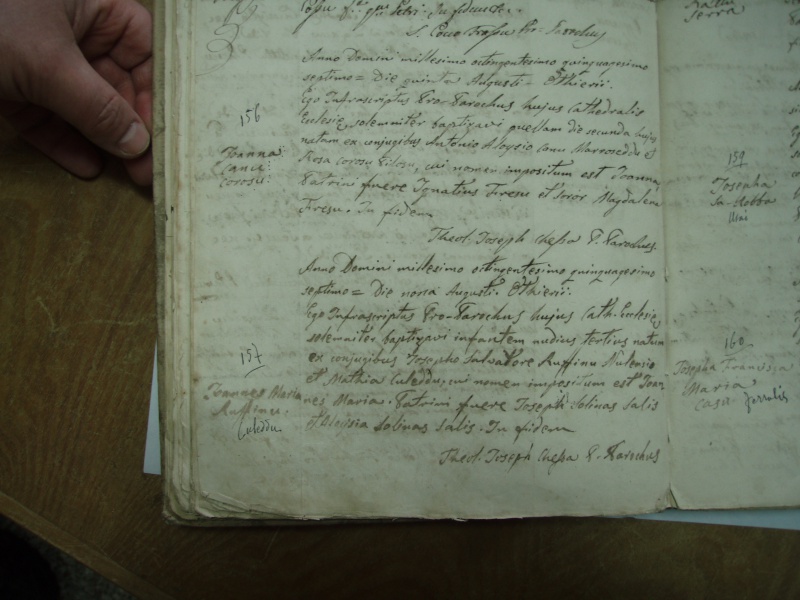 In fidem
Pro-Parochus
Anno Domini millesimo octingentesimo quinquagesimo
septimo = Die quinta Augusti - Othierii.
156
Ego Infrascriptus Pro-Parochus hujus Cathedralis
Eclesie, solemniter baptizavi puellam die secunda hujus
natam ex conjugibus Antonio Aloysio Canu et
Joanna
Canu
Corosu
Rosa Corosu, cui nomen impositum est Joanna.
Patrini fuere Ignatius Firesu et Soror Magdalena
Firesu. In fidem
Theol. Joseph Chessa P. Parochus.
Anno Domini millesimo octingentesimo quinquagesimo
septimo = Die nona Augusti. Othierii.
Ego Infrascriptus Pro-Parochus hujus Cath. Eclesie,
solemniter baptizavi infantem nudius tertius natum
157
ex conjugibus Josepho Salvatore Ruffinu
et Mathia Culeddu, cui nomen impositum est Joan
Joannes Maria
Ruffinu
Culeddu
nes Maria. Patrini fuere Joseph Solinas Salis
et Aloisia Solinas Salis. In fidem
Theol. Joseph Chessa P. Parochus
Serra
159
Josepha
160
Josepha Francisca
Maria
Casu